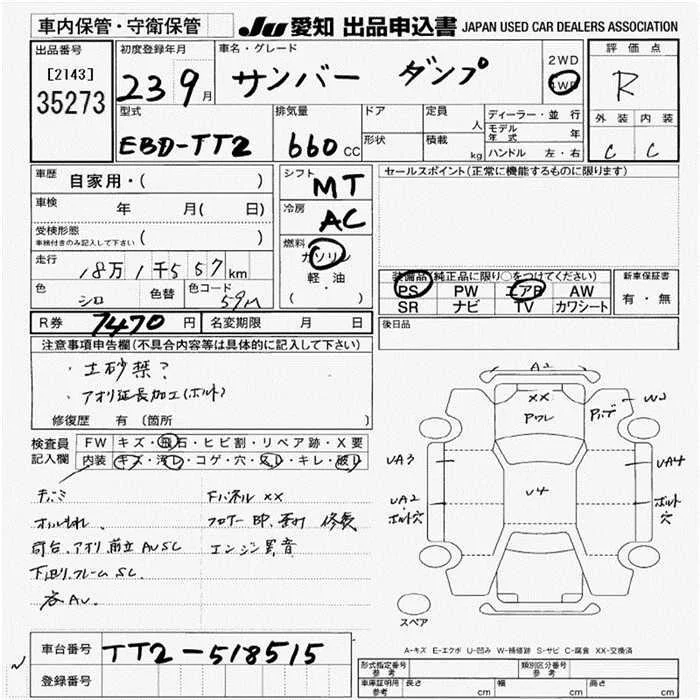 車内保管・守衛保管
JU 愛知 出品申込書 JAPAN USED CAR DEALERS ASSOCIATION
出品番号
[2143]
35273
初度登録年月
23 9月
車名・グレード
サンバー ダンプ
2WD
4WD
評価点
R
外装 内装
C C
型式
EBD-TT2
排気量
660cc
ドア
形状
定員 人
積載 kg
ディーラー・並行
モデル年式 年
ハンドル 左・右
車歴 自家用・( )
車検 年 月( 日)
受検形態
車検付きのみ記入して下さい ( )
走行 18万1千557km
色 シロ 色替 色コード 59M
シフト MT
冷房 AC
燃料 ガソリン
軽・油
セールスポイント(正常に機能するものに限ります)
装備品(純正品に限り○をつけてください)
PS PW エアB AW
SR ナビ TV カワシート
新車保証書
有・無
R券 7470円 名変期限 月 日
後日品
注意事項申告欄(不具合内容等は具体的に記入して下さい)
・土砂禁?
・アオリ延長加工(ボルト)
修復歴 有 〔箇所 〕
検査員記入欄
FW キズ・飛石・ヒビ割・リペア跡・X要
内装 キズ・汚レ・コゲ・穴・スレ・キレ・破レ
Fパネル XX
エンジン異音
下回り、フレーム SC.
A2
XX
W2
UA3
UA4
U4
UA2・ボルト穴
ボルト穴
スペア
A-キズ E-エクボ U-凹み W-補修跡 S-サビ C-腐食 XX-交換済
車台番号 TT2-518515
登録番号
形式指定番号 参考
類別区分番号 参考
車庫証明用 参考 長さ cm 幅 cm 高さ cm